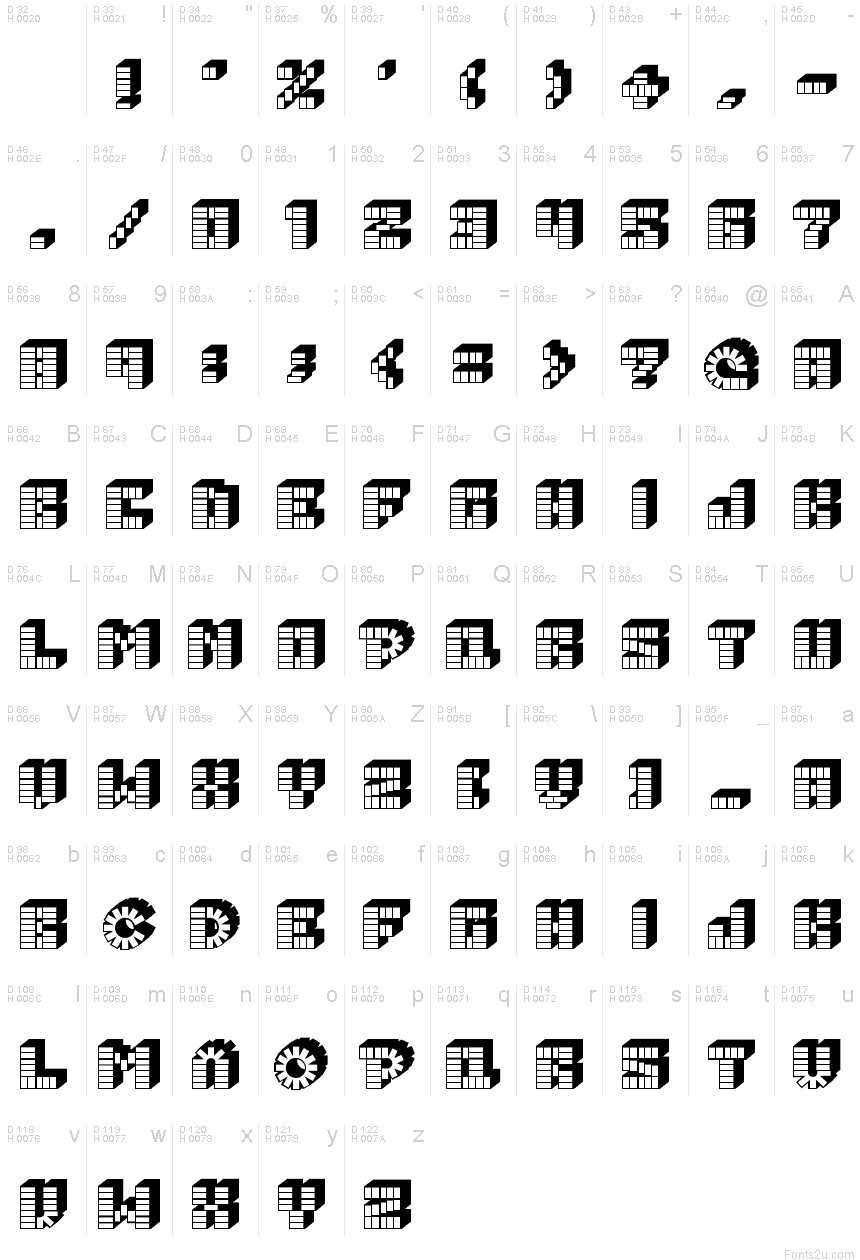 D 32 H 0020 D 33 H 0021 ! D 34 H 0022 " D 37 H 0025 % D 39 H 0027 ' D 40 H 0028 ( D 41 H 0029 ) D 43 H 002B + D 44 H 002C , D 45 H 002D -
! " % ' ( ) + , -
D 46 H 002E . D 47 H 002F / D 48 H 0030 0 D 49 H 0031 1 D 50 H 0032 2 D 51 H 0033 3 D 52 H 0034 4 D 53 H 0035 5 D 54 H 0036 6 D 55 H 0037 7
. / 0 1 2 3 4 5 6 7
D 56 H 0038 8 D 57 H 0039 9 D 58 H 003A : D 59 H 003B ; D 60 H 003C < D 61 H 003D = D 62 H 003E > D 63 H 003F ? D 64 H 0040 @ D 65 H 0041 A
8 9 : ; < = > ? @ A
D 66 H 0042 B D 67 H 0043 C D 68 H 0044 D D 69 H 0045 E D 70 H 0046 F D 71 H 0047 G D 72 H 0048 H D 73 H 0049 I D 74 H 004A J D 75 H 004B K
B C D E F G H I J K
D 76 H 004C L D 77 H 004D M D 78 H 004E N D 79 H 004F O D 80 H 0050 P D 81 H 0051 Q D 82 H 0052 R D 83 H 0053 S D 84 H 0054 T D 85 H 0055 U
L M N O P Q R S T U
D 86 H 0056 V D 87 H 0057 W D 88 H 0058 X D 89 H 0059 Y D 90 H 005A Z D 91 H 005B [ D 92 H 005C \ D 93 H 005D ] D 95 H 005F _ D 97 H 0061 a
V W X Y Z [ \ ] _ A
D 98 H 0062 b D 99 H 0063 c D 100 H 0064 d D 101 H 0065 e D 102 H 0066 f D 103 H 0067 g D 104 H 0068 h D 105 H 0069 i D 106 H 006A j D 107 H 006B k
B C D E F G H I J K
D 108 H 006C l D 109 H 006D m D 110 H 006E n D 111 H 006F o D 112 H 0070 p D 113 H 0071 q D 114 H 0072 r D 115 H 0073 s D 116 H 0074 t D 117 H 0075 u
L M N O P Q R S T U
D 118 H 0076 v D 119 H 0077 w D 120 H 0078 x D 121 H 0079 y D 122 H 007A z
V W X Y Z
Fonts2u.com